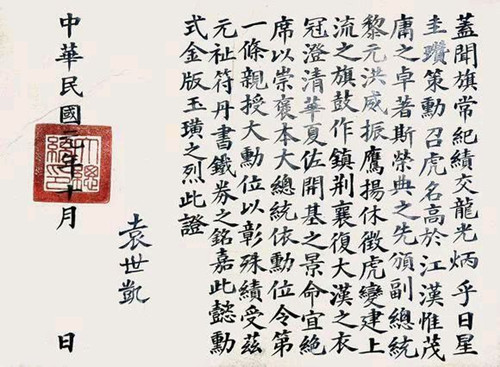 蓋聞旗常紀績交龍光炳乎日星
圭瓚策勳召虎名高於江漢惟茂
庸之卓著斯榮典之先頒副總統
黎元洪威振鷹揚休徵虎變建上
流之旗鼓作鎮荆襄復大漢之衣
冠澄清華夏佐開基之景命宜絕
席以崇褒本大總統依勳位令第
一條親授大勳位以彰殊績受茲
元祉符丹書鐵券之銘嘉此懿勳
式金版玉璜之烈此證
袁世凱
中華民國年十月 日
大總統印